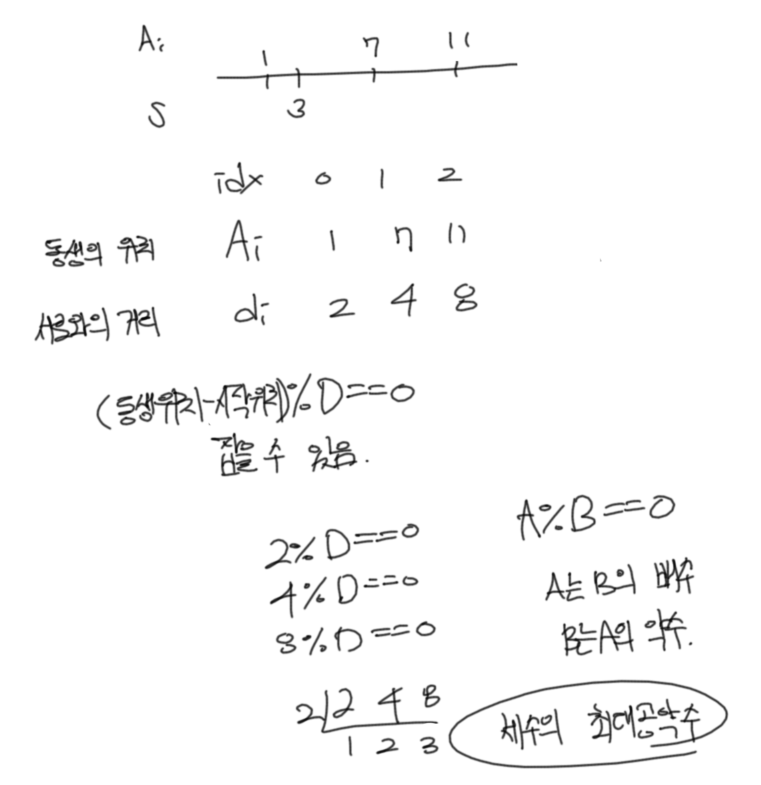 Ai 1 7 11
S 3
idx 0 1 2
동생의 위치 Ai 1 7 11
서로와의 거리 di 2 4 8
(동생위치-시작위치)%D==0
잡을 수 있음.
2%D==0
4%D==0
8%D==0
A%B==0
A는 B의 배수
B는 A의 약수.
2 2 4 8
1 2 3
세수의 최대공약수